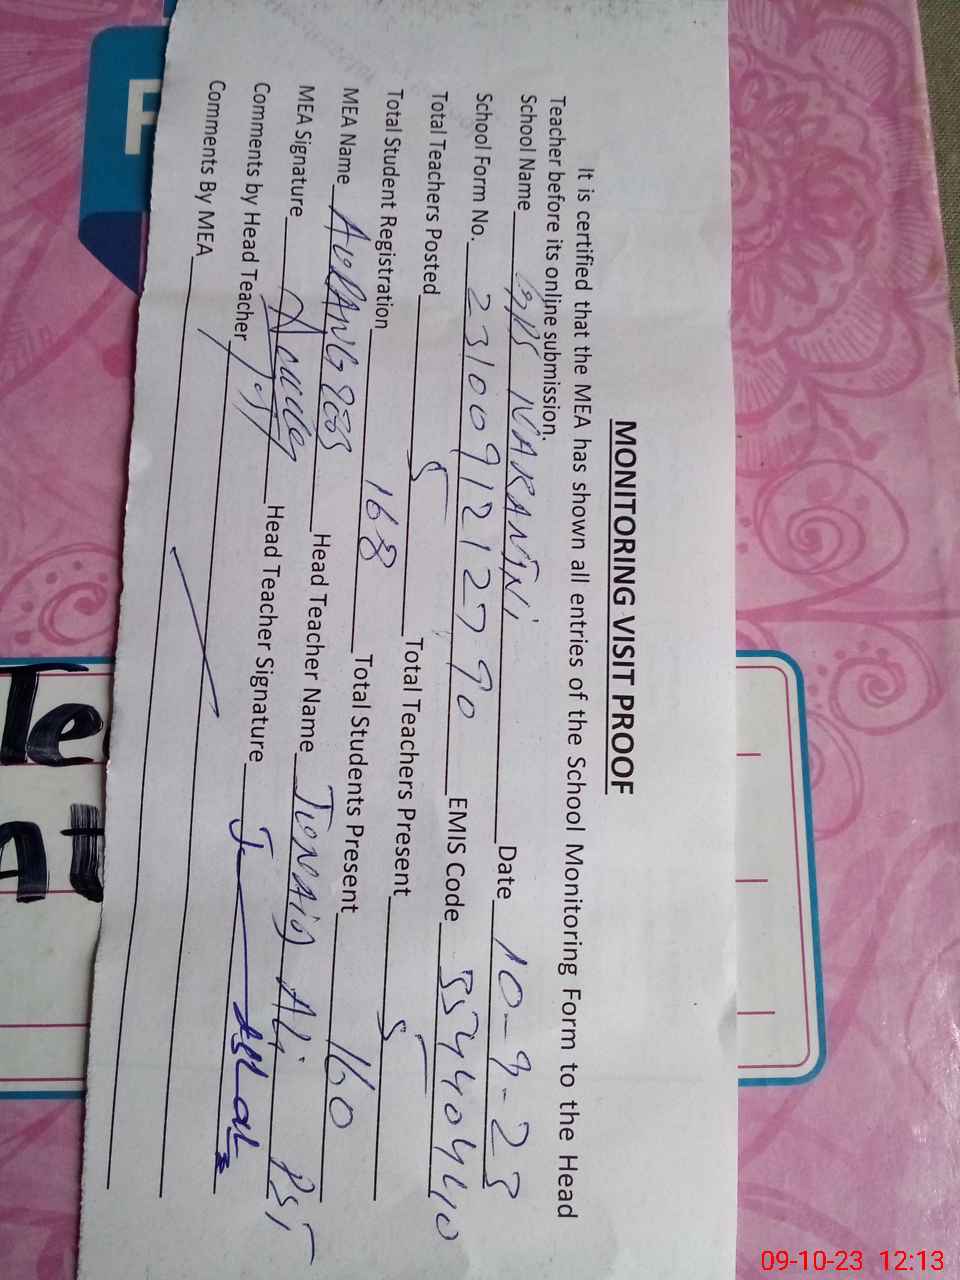 MONITORING VISIT PROOF
It is certified that the MEA has shown all entries of the School Monitoring Form to the Head
Teacher before its online submission.
School Name GPS NARANJNI Date 10-9-23
School Form No. 23100912127790 EMIS Code
Total Teachers Posted 5 Total Teachers Present 5
Total Student Registration 168 Total Students Present 160
MEA Name AURANGZEB Head Teacher Name JUNAID Ali PST
MEA Signature Head Teacher Signature
Comments by Head Teacher
Comments By MEA
09-10-23 12:13